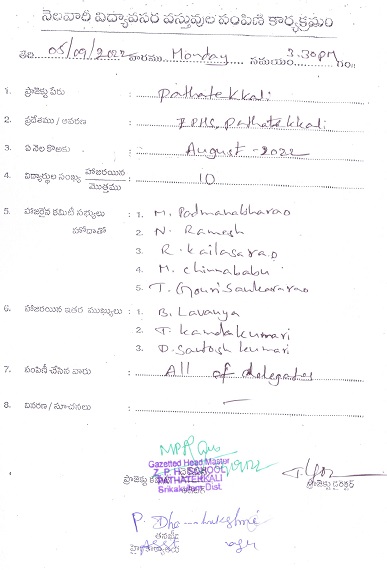 నెలవారీ విద్యావసర వస్తువుల పంపిణి కార్యక్రమం
తేది 05/09/2022 వారము Monday సమయం 3.30pm గం॥
1. ప్రాజెక్టు పేరు : Pathatekkali
2. ప్రదేశము / ఆవరణ : ZPHS, Pathatekkali
3. ఏ నెల కొఱకు : August - 2022
4. విద్యార్థుల సంఖ్య హాజరయిన / మొత్తము : 10
5. హాజరైన కమిటీ సభ్యులు : 1. M. Padmanabharao
హోదాతో 2. N. Ramesh
3. R. Kailasarao
4. M. Chinnababu
5. T. Gourisankararao
6. హాజరయిన ఇతర ముఖ్యులు : 1. B. Lavanya
2. T. Kandakumari
3. D. Santosh kumari
7. పంపిణీ చేసిన వారు : All of delegates
8. వివరణ / సూచనలు : —
Gazetted Head Master
Z. P. H. SCHOOL
PATHATEKKALI
Srikakulam Dist.
ప్రాజెక్టు డైరెక్టర్
P. Dhanalakshmi